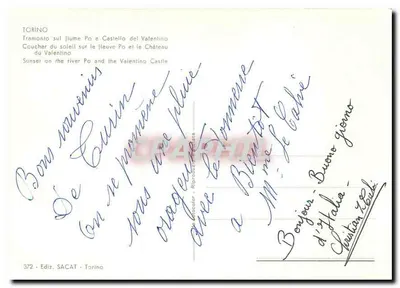 TORINO
Tramonto sul fiume Po e Castello del Valentino
Coucher du soleil sur le fleuve Po et le Château
du Valentino
Sunset on the river Po and the Valentino Castle
Bons souvenirs
De Turin
on se promène
sous une pluie
orageuse
avec le
a Bientôt
Mme Le
Bonjour - Buono giorno
d'Italia -
Christian
372 - Ediz. SACAT - Torino